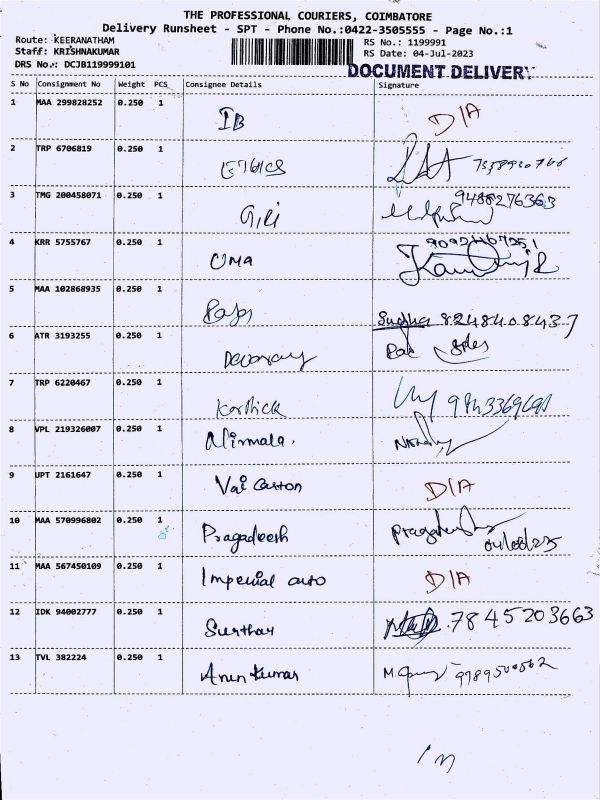 THE PROFESSIONAL COURIERS, COIMBATORE
Delivery Runsheet - SPT - Phone No.:0422-3505555 - Page No.:1
Route: KEERANATHAM RS No.: 1199991
Staff: KRISHNAKUMAR RS Date: 04-Jul-2023
DRS No.: DCJB119999101 DOCUMENT DELIVERY
S No Consignment No Weight PCS Consignee Details Signature
1 MAA 299828252 0.250 1 IB D/A
2 TRP 6706819 0.250 1
3 TMG 200458071 0.250 1 Giri 9488276363
4 KRR 5755767 0.250 1 UMA 9092467251
5 MAA 102868935 0.250 1 Sudha 8248408437
6 ATR 3193255 0.250 1
7 TRP 6220467 0.250 1 Karthick
8 VPL 219326007 0.250 1 Nirmala.
9 UPT 2161647 0.250 1 Vai Carton D/A
10 MAA 570996802 0.250 1 Pragadeesh
11 MAA 567450109 0.250 1 Imperial auto D/A
12 IDK 94002777 0.250 1 7845203663
13 TVL 382224 0.250 1 Arun Kumar 9789500562